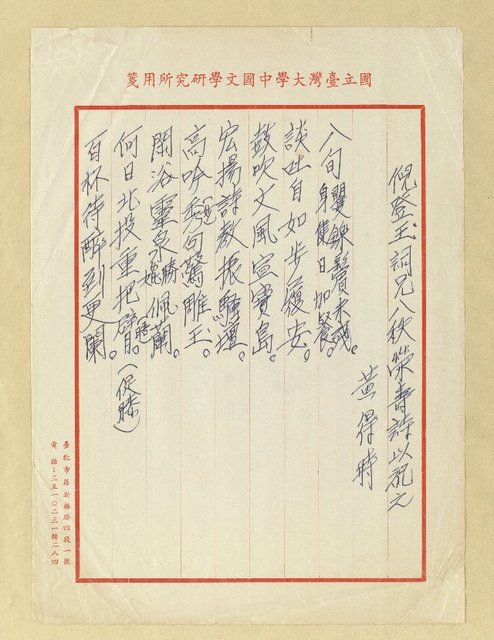 國立臺灣大學中國文學研究所用箋
倪登玉詞兄八秩榮壽詩以祝之
黃得時
八旬矍鑠鬢未殘。
身健日加餐。
談吐自如步履安。
鼓吹文風宣寶島。
宏揚詩教振騷壇。
高吟秀句驚雕玉。
閒浴靈泉勝佩蘭。
何日北投重把臂。(促膝)
百杯待醉到更闌。
臺北市羅斯福路四段一號
電話:三五一〇二三一轉二八四